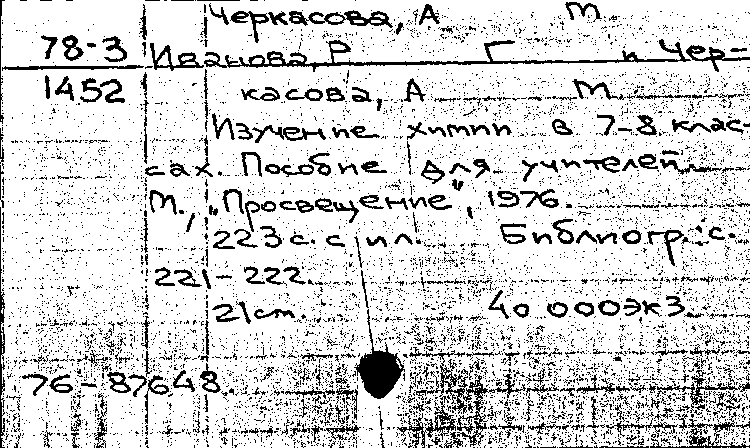 Черкасова, А М
78-3 Иванова, Р Г и Чер-
1452 касова, А М
Изучение химии в 7-8 клас-
сах. Пособие для учителей.
М., „Просвещение", 1976.
223 с. с ил. Библиогр.: с.
221-222.
21 см. 40 000 экз.
76-87648.